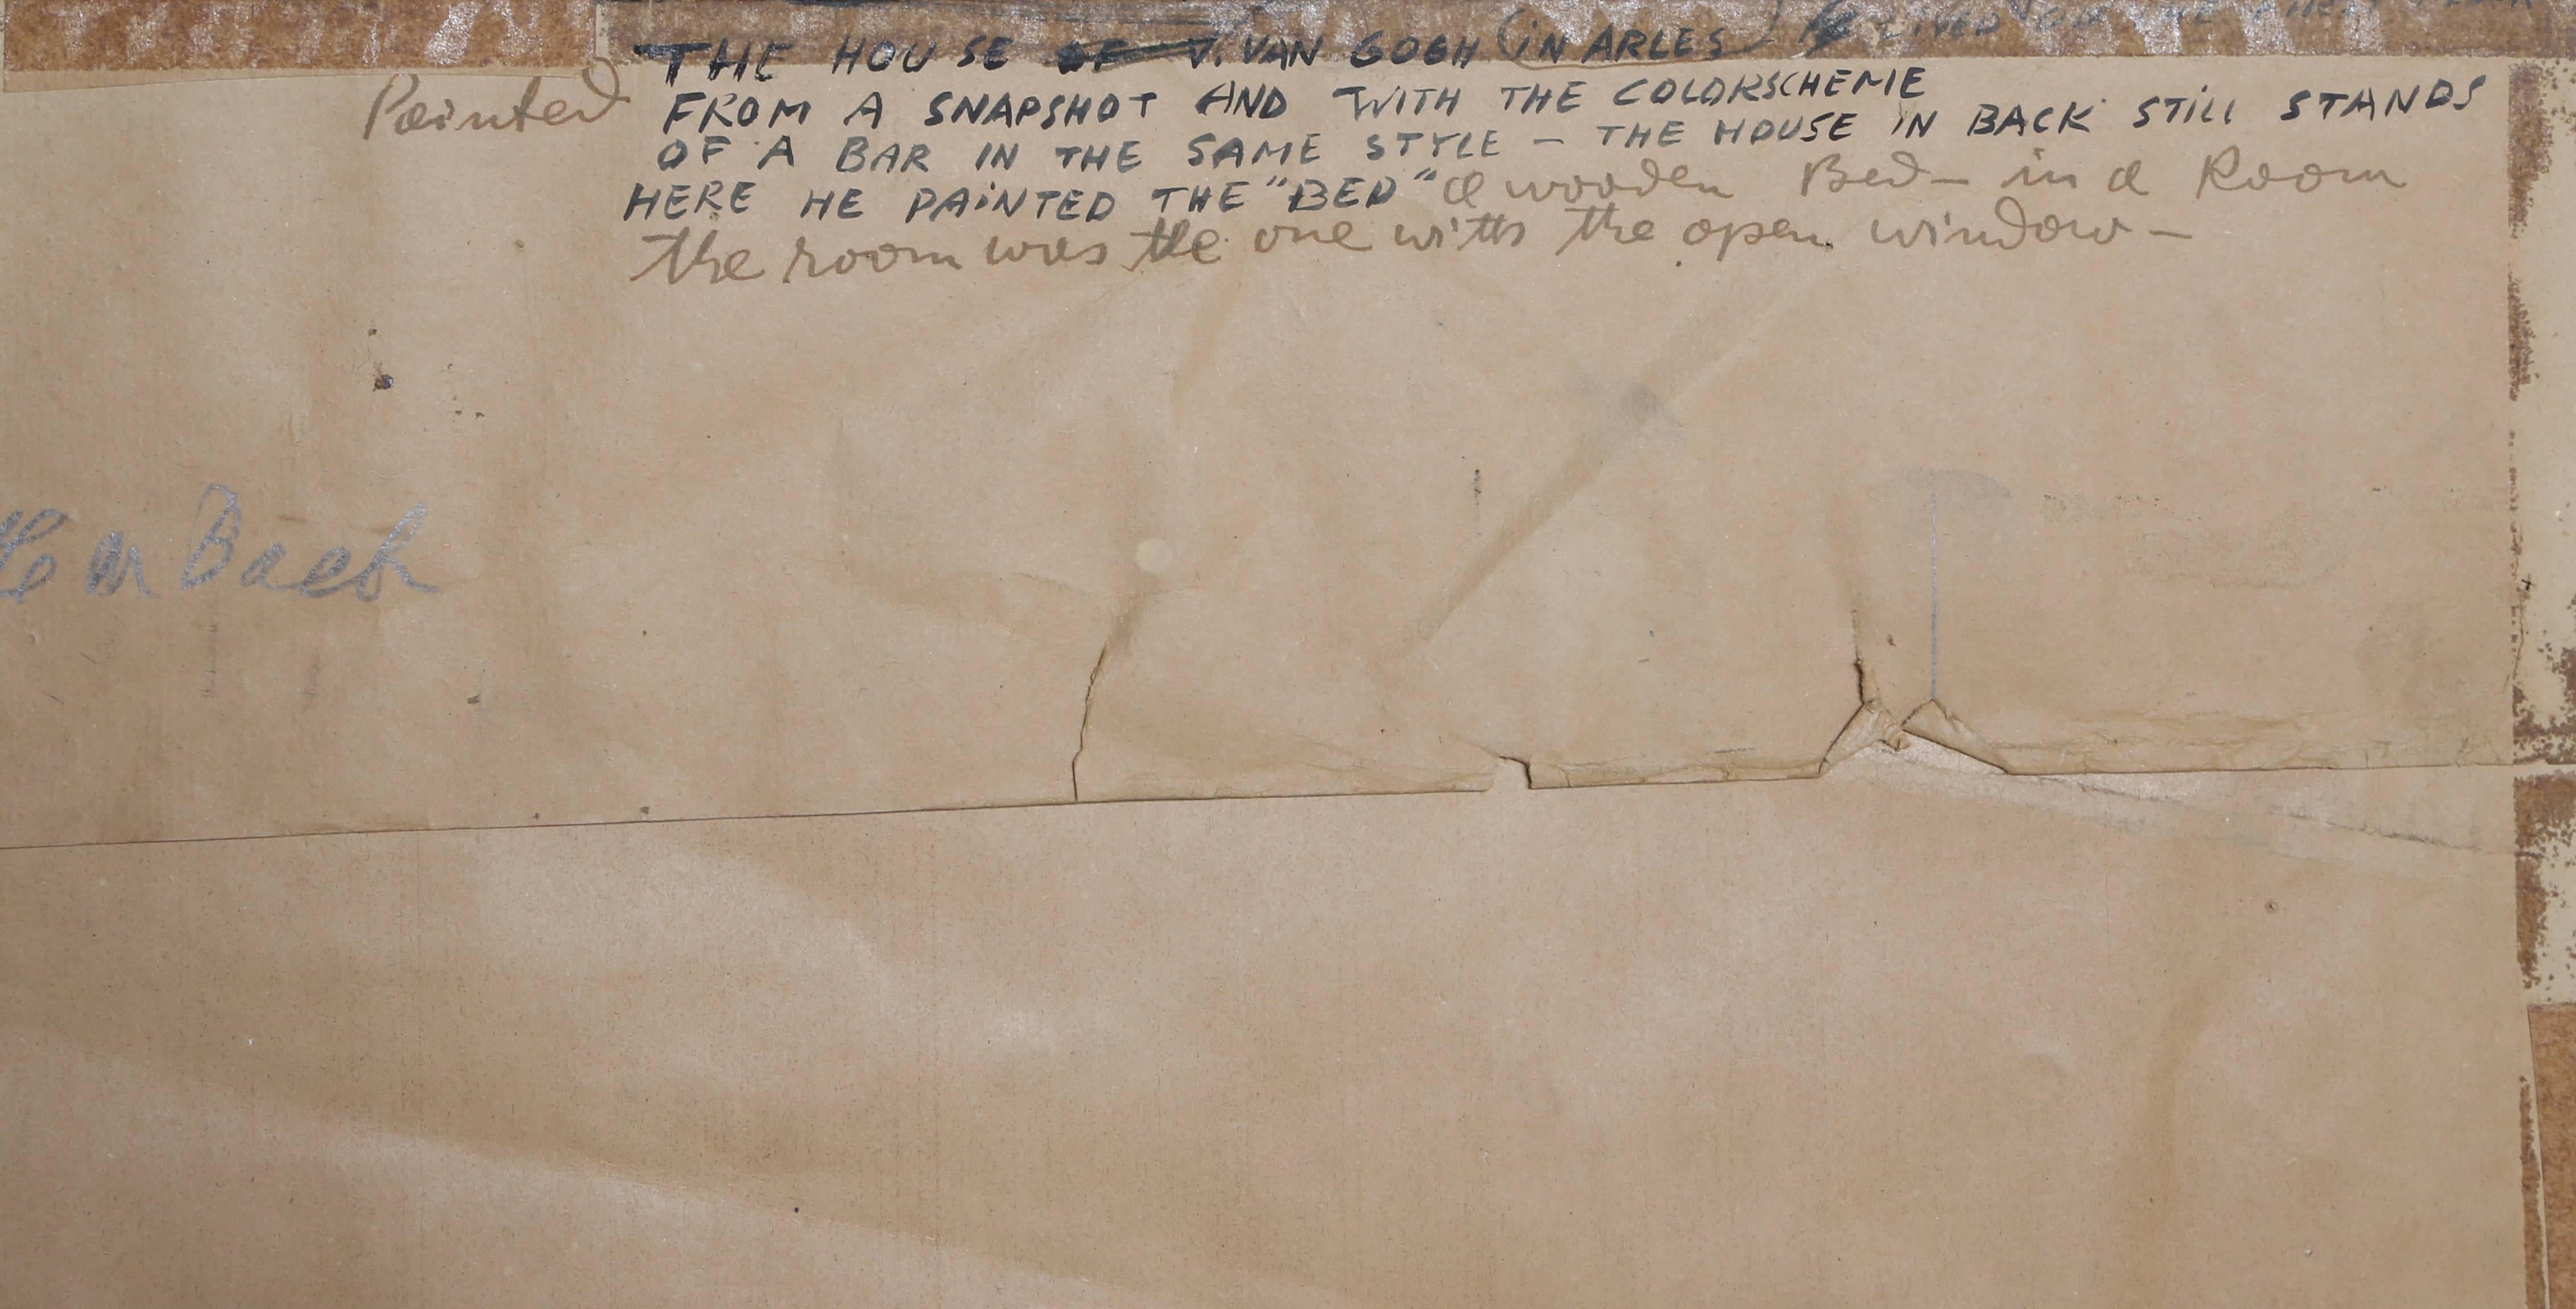 THE HOUSE OF V. VAN GOGH (IN ARLES) He LIVED ON THE FIRST FLOOR
Painted FROM A SNAPSHOT AND WITH THE COLORSCHEME
OF A BAR IN THE SAME STYLE – THE HOUSE IN BACK STILL STANDS
HERE HE PAINTED THE "BED" a wooden Bed – in a Room
the room was the one with the open window –
Bach